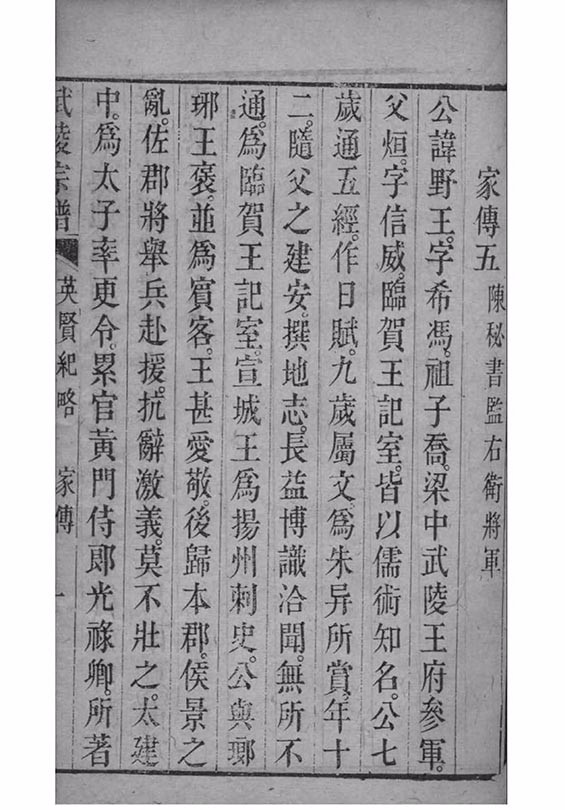 家傳五 陳秘書監右衛將軍
公諱野王。字希馮。祖子喬。梁中武陵王府參軍。
父烜。字信威。臨賀王記室。皆以儒術知名。公七
歲通五經。作日賦。九歲屬文。爲朱异所賞。年十
二。隨父之建安。撰地志。長益博識洽聞。無所不
通。爲臨賀王記室。宣城王爲揚州刺史。公與瑯
琊王褒。並爲賓客。王甚愛敬。後歸本郡。侯景之
亂。佐郡將舉兵赴援。抗辭激義。莫不壯之。太建
中。爲太子率更令。累官黃門侍郎光祿卿。所著
武陵宗譜 英賢紀略 家傳